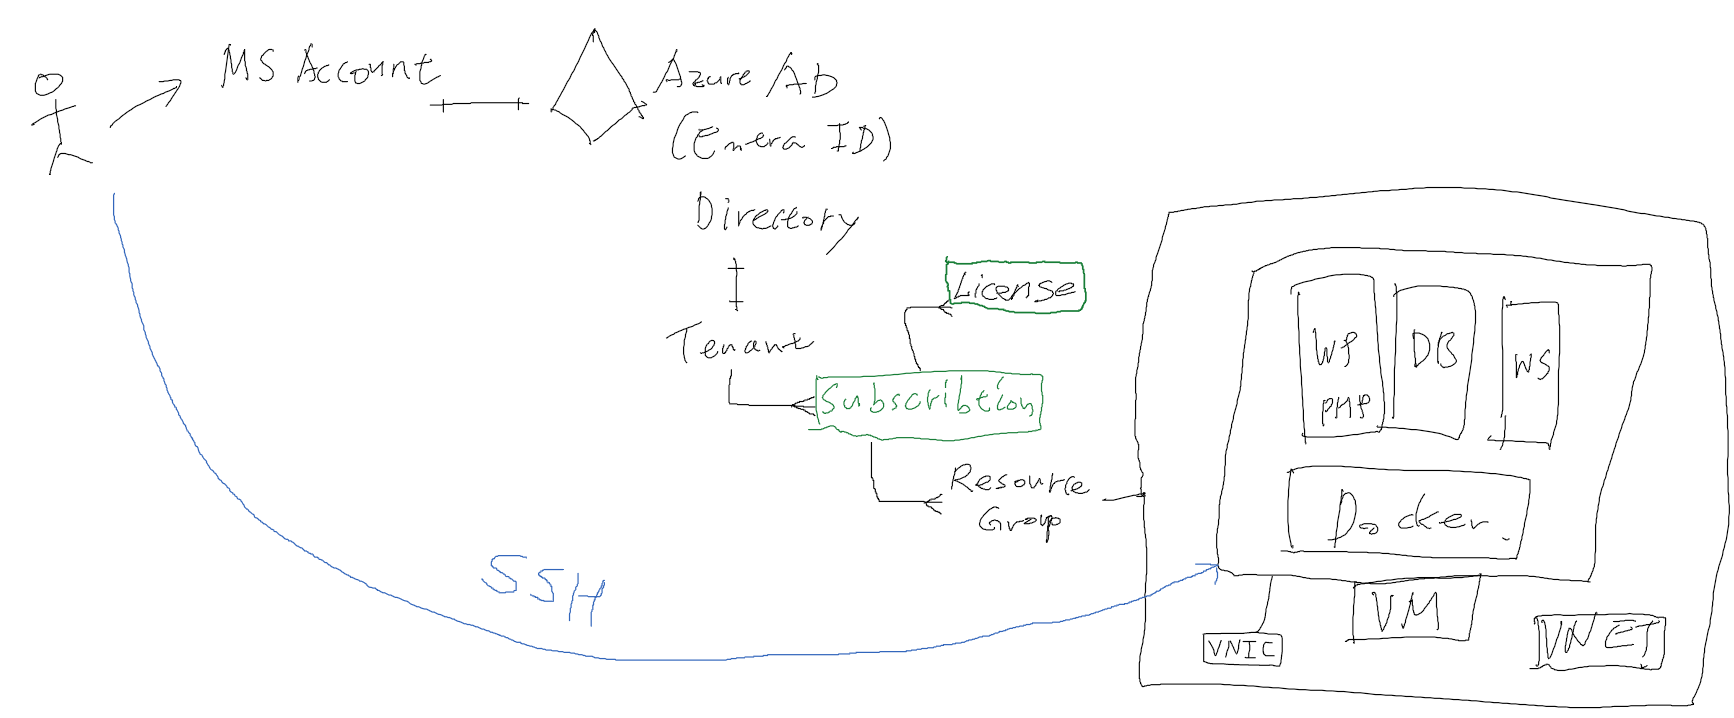 MS Account
Azure AD
(Entera ID)
Directory
License
Tenant
Subscribtion
Resource
Group
WP
PHP
DB
WS
Docker.
VM
VNIC
VNET
SSH